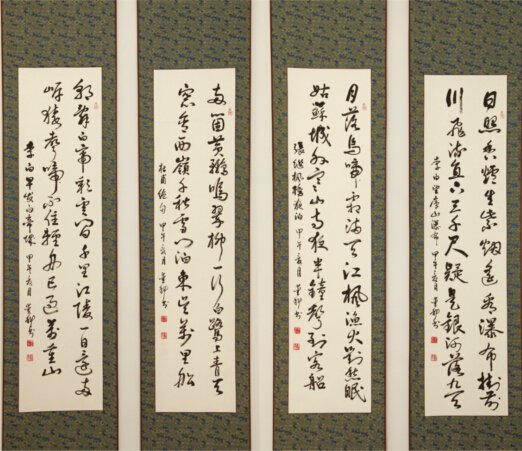 日照香爐生紫烟遥看瀑布掛前
川飛流直下三千尺疑是銀河落九天
李白望廬山瀑布 甲午 月 書
月落烏啼霜滿天江楓漁火對愁眠
姑蘇城外寒山寺夜半鐘聲到客船
張継楓橋夜泊 甲午 月 書
两箇黄鸝鳴翠柳一行白鷺上青天
窓含西嶺千秋雪門泊東吴萬里船
杜甫绝句 甲午 月 書
朝辞白帝彩雲間千里江陵一日還两
岸猿聲啼不住輕舟已過萬重山
李白早發白帝城 甲午 月 書